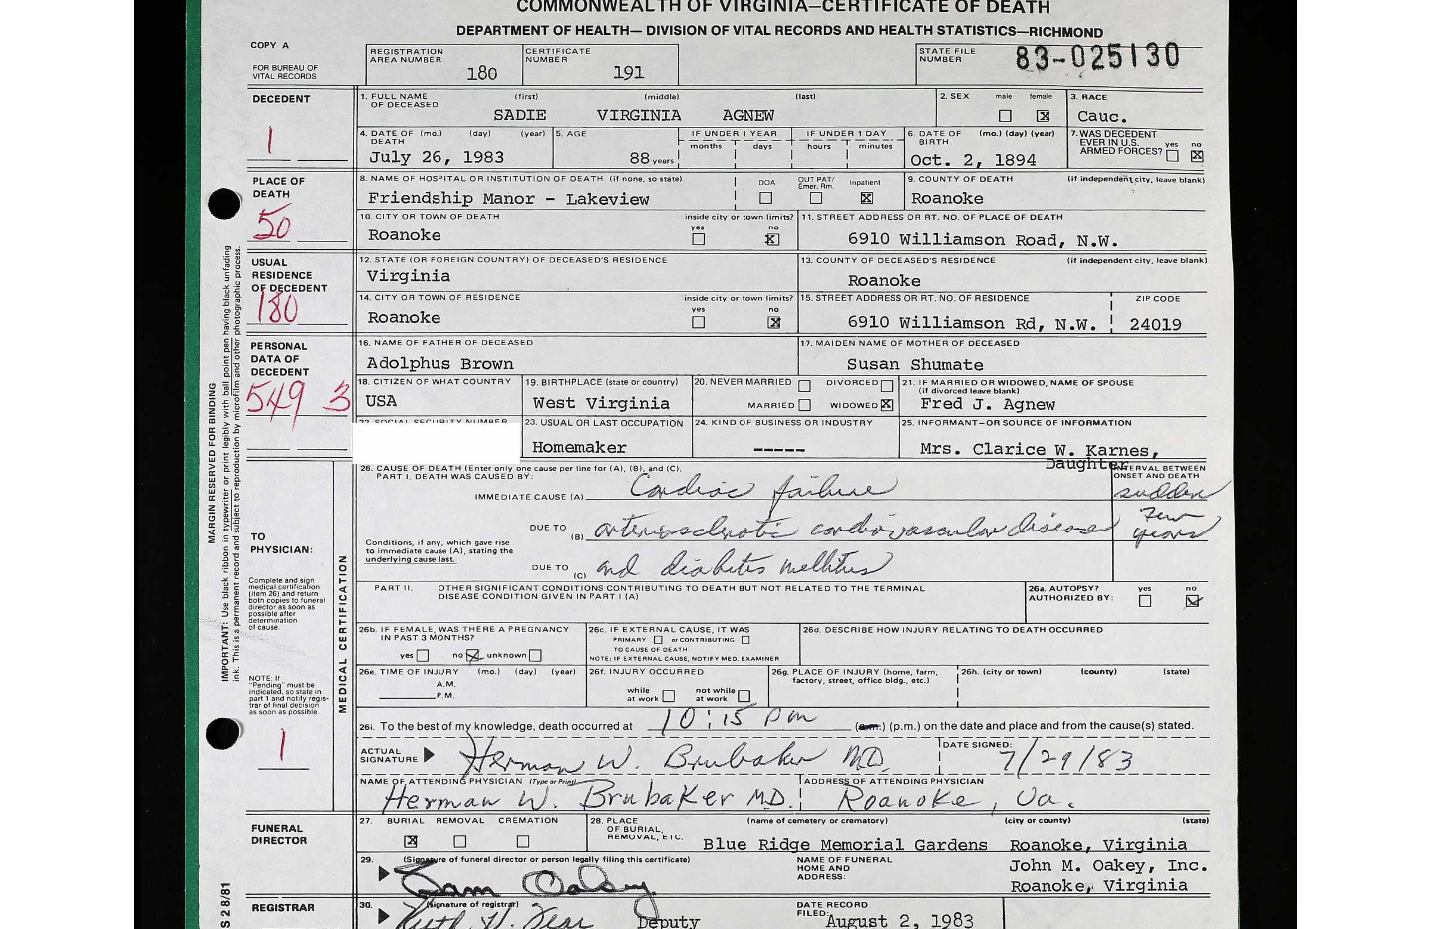 COMMONWEALTH OF VIRGINIA—CERTIFICATE OF DEATH
DEPARTMENT OF HEALTH— DIVISION OF VITAL RECORDS AND HEALTH STATISTICS—RICHMOND
COPY A
FOR BUREAU OF VITAL RECORDS
REGISTRATION AREA NUMBER 180
CERTIFICATE NUMBER 191
STATE FILE NUMBER 83-025130
DECEDENT
1
1. FULL NAME OF DECEASED (first) (middle) (last)
SADIE VIRGINIA AGNEW
2. SEX male female ☒
3. RACE
Cauc.
4. DATE OF DEATH (mo.) (day) (year)
July 26, 1983
5. AGE
88 years
IF UNDER 1 YEAR
months days
IF UNDER 1 DAY
hours minutes
6. DATE OF BIRTH (mo.) (day) (year)
Oct. 2, 1894
7. WAS DECEDENT EVER IN U.S. ARMED FORCES? yes no ☒
PLACE OF DEATH
50
8. NAME OF HOSPITAL OR INSTITUTION OF DEATH (if none, so state)
Friendship Manor - Lakeview
DOA OUT PAT/ Emer. Rm. Inpatient ☒
9. COUNTY OF DEATH (if independent city, leave blank)
Roanoke
10. CITY OR TOWN OF DEATH inside city or town limits? yes no ☒
Roanoke
11. STREET ADDRESS OR RT. NO. OF PLACE OF DEATH
6910 Williamson Road, N.W.
USUAL RESIDENCE OF DECEDENT
180
12. STATE (OR FOREIGN COUNTRY) OF DECEASED'S RESIDENCE
Virginia
13. COUNTY OF DECEASED'S RESIDENCE (if independent city, leave blank)
Roanoke
14. CITY OR TOWN OF RESIDENCE inside city or town limits? yes no ☒
Roanoke
15. STREET ADDRESS OR RT. NO. OF RESIDENCE ZIP CODE
6910 Williamson Rd, N.W. 24019
PERSONAL DATA OF DECEDENT
549 3
16. NAME OF FATHER OF DECEASED
Adolphus Brown
17. MAIDEN NAME OF MOTHER OF DECEASED
Susan Shumate
18. CITIZEN OF WHAT COUNTRY
USA
19. BIRTHPLACE (state or country)
West Virginia
20. NEVER MARRIED DIVORCED
MARRIED WIDOWED ☒
21. IF MARRIED OR WIDOWED, NAME OF SPOUSE
(if divorced leave blank)
Fred J. Agnew
22. SOCIAL SECURITY NUMBER
23. USUAL OR LAST OCCUPATION
Homemaker
24. KIND OF BUSINESS OR INDUSTRY
-----
25. INFORMANT—OR SOURCE OF INFORMATION
Mrs. Clarice W. Karnes,
Daughter
26. CAUSE OF DEATH (Enter only one cause per line for (A), (B), and (C).
PART I. DEATH WAS CAUSED BY:
INTERVAL BETWEEN ONSET AND DEATH
IMMEDIATE CAUSE (A) Cardiac failure
sudden
DUE TO (B) arteriosclerotic cardiovascular disease
Few years
Conditions, if any, which gave rise to immediate cause (A), stating the underlying cause last.
DUE TO (C) and diabetis mellitus
PART II. OTHER SIGNIFICANT CONDITIONS CONTRIBUTING TO DEATH BUT NOT RELATED TO THE TERMINAL DISEASE CONDITION GIVEN IN PART I (A)
26a. AUTOPSY? AUTHORIZED BY: yes no ☒
26b. IF FEMALE, WAS THERE A PREGNANCY IN PAST 3 MONTHS?
yes no ☒ unknown
26c. IF EXTERNAL CAUSE, IT WAS
PRIMARY or CONTRIBUTING
TO CAUSE OF DEATH
NOTE: IF EXTERNAL CAUSE, NOTIFY MED. EXAMINER
26d. DESCRIBE HOW INJURY RELATING TO DEATH OCCURRED
26e. TIME OF INJURY (mo.) (day) (year)
A.M.
P.M.
26f. INJURY OCCURRED
while at work not while at work
26g. PLACE OF INJURY (home, farm, factory, street, office bldg., etc.)
26h. (city or town) (county) (state)
26i. To the best of my knowledge, death occurred at 10:15 pm (a.m.) (p.m.) on the date and place and from the cause(s) stated.
ACTUAL SIGNATURE Herman W. Brubaker MD.
DATE SIGNED: 7/29/83
NAME OF ATTENDING PHYSICIAN (Type or Print)
Herman W. Brubaker MD.
ADDRESS OF ATTENDING PHYSICIAN
Roanoke, Va.
TO PHYSICIAN:
Complete and sign medical certification (item 26) and return both copies to funeral director as soon as possible after determination of cause.
NOTE: If "Pending" must be indicated, so state in part 1 and notify registrar of final decision as soon as possible.
1
MEDICAL CERTIFICATION
MARGIN RESERVED FOR BINDING
IMPORTANT: Use black ribbon in typewriter or print legibly with ball point pen having black unfading ink. This is a permanent record and subject to reproduction by microfilm and other photographic process.
FUNERAL DIRECTOR
27. BURIAL REMOVAL CREMATION
☒
28. PLACE OF BURIAL, REMOVAL, ETC. (name of cemetery or crematory) (city or county) (state)
Blue Ridge Memorial Gardens Roanoke, Virginia
29. (Signature of funeral director or person legally filing this certificate)
Sam Oakey
NAME OF FUNERAL HOME AND ADDRESS:
John M. Oakey, Inc.
Roanoke, Virginia
REGISTRAR
30. (signature of registrar)
Deputy
DATE RECORD FILED:
August 2, 1983
S 2 8/81